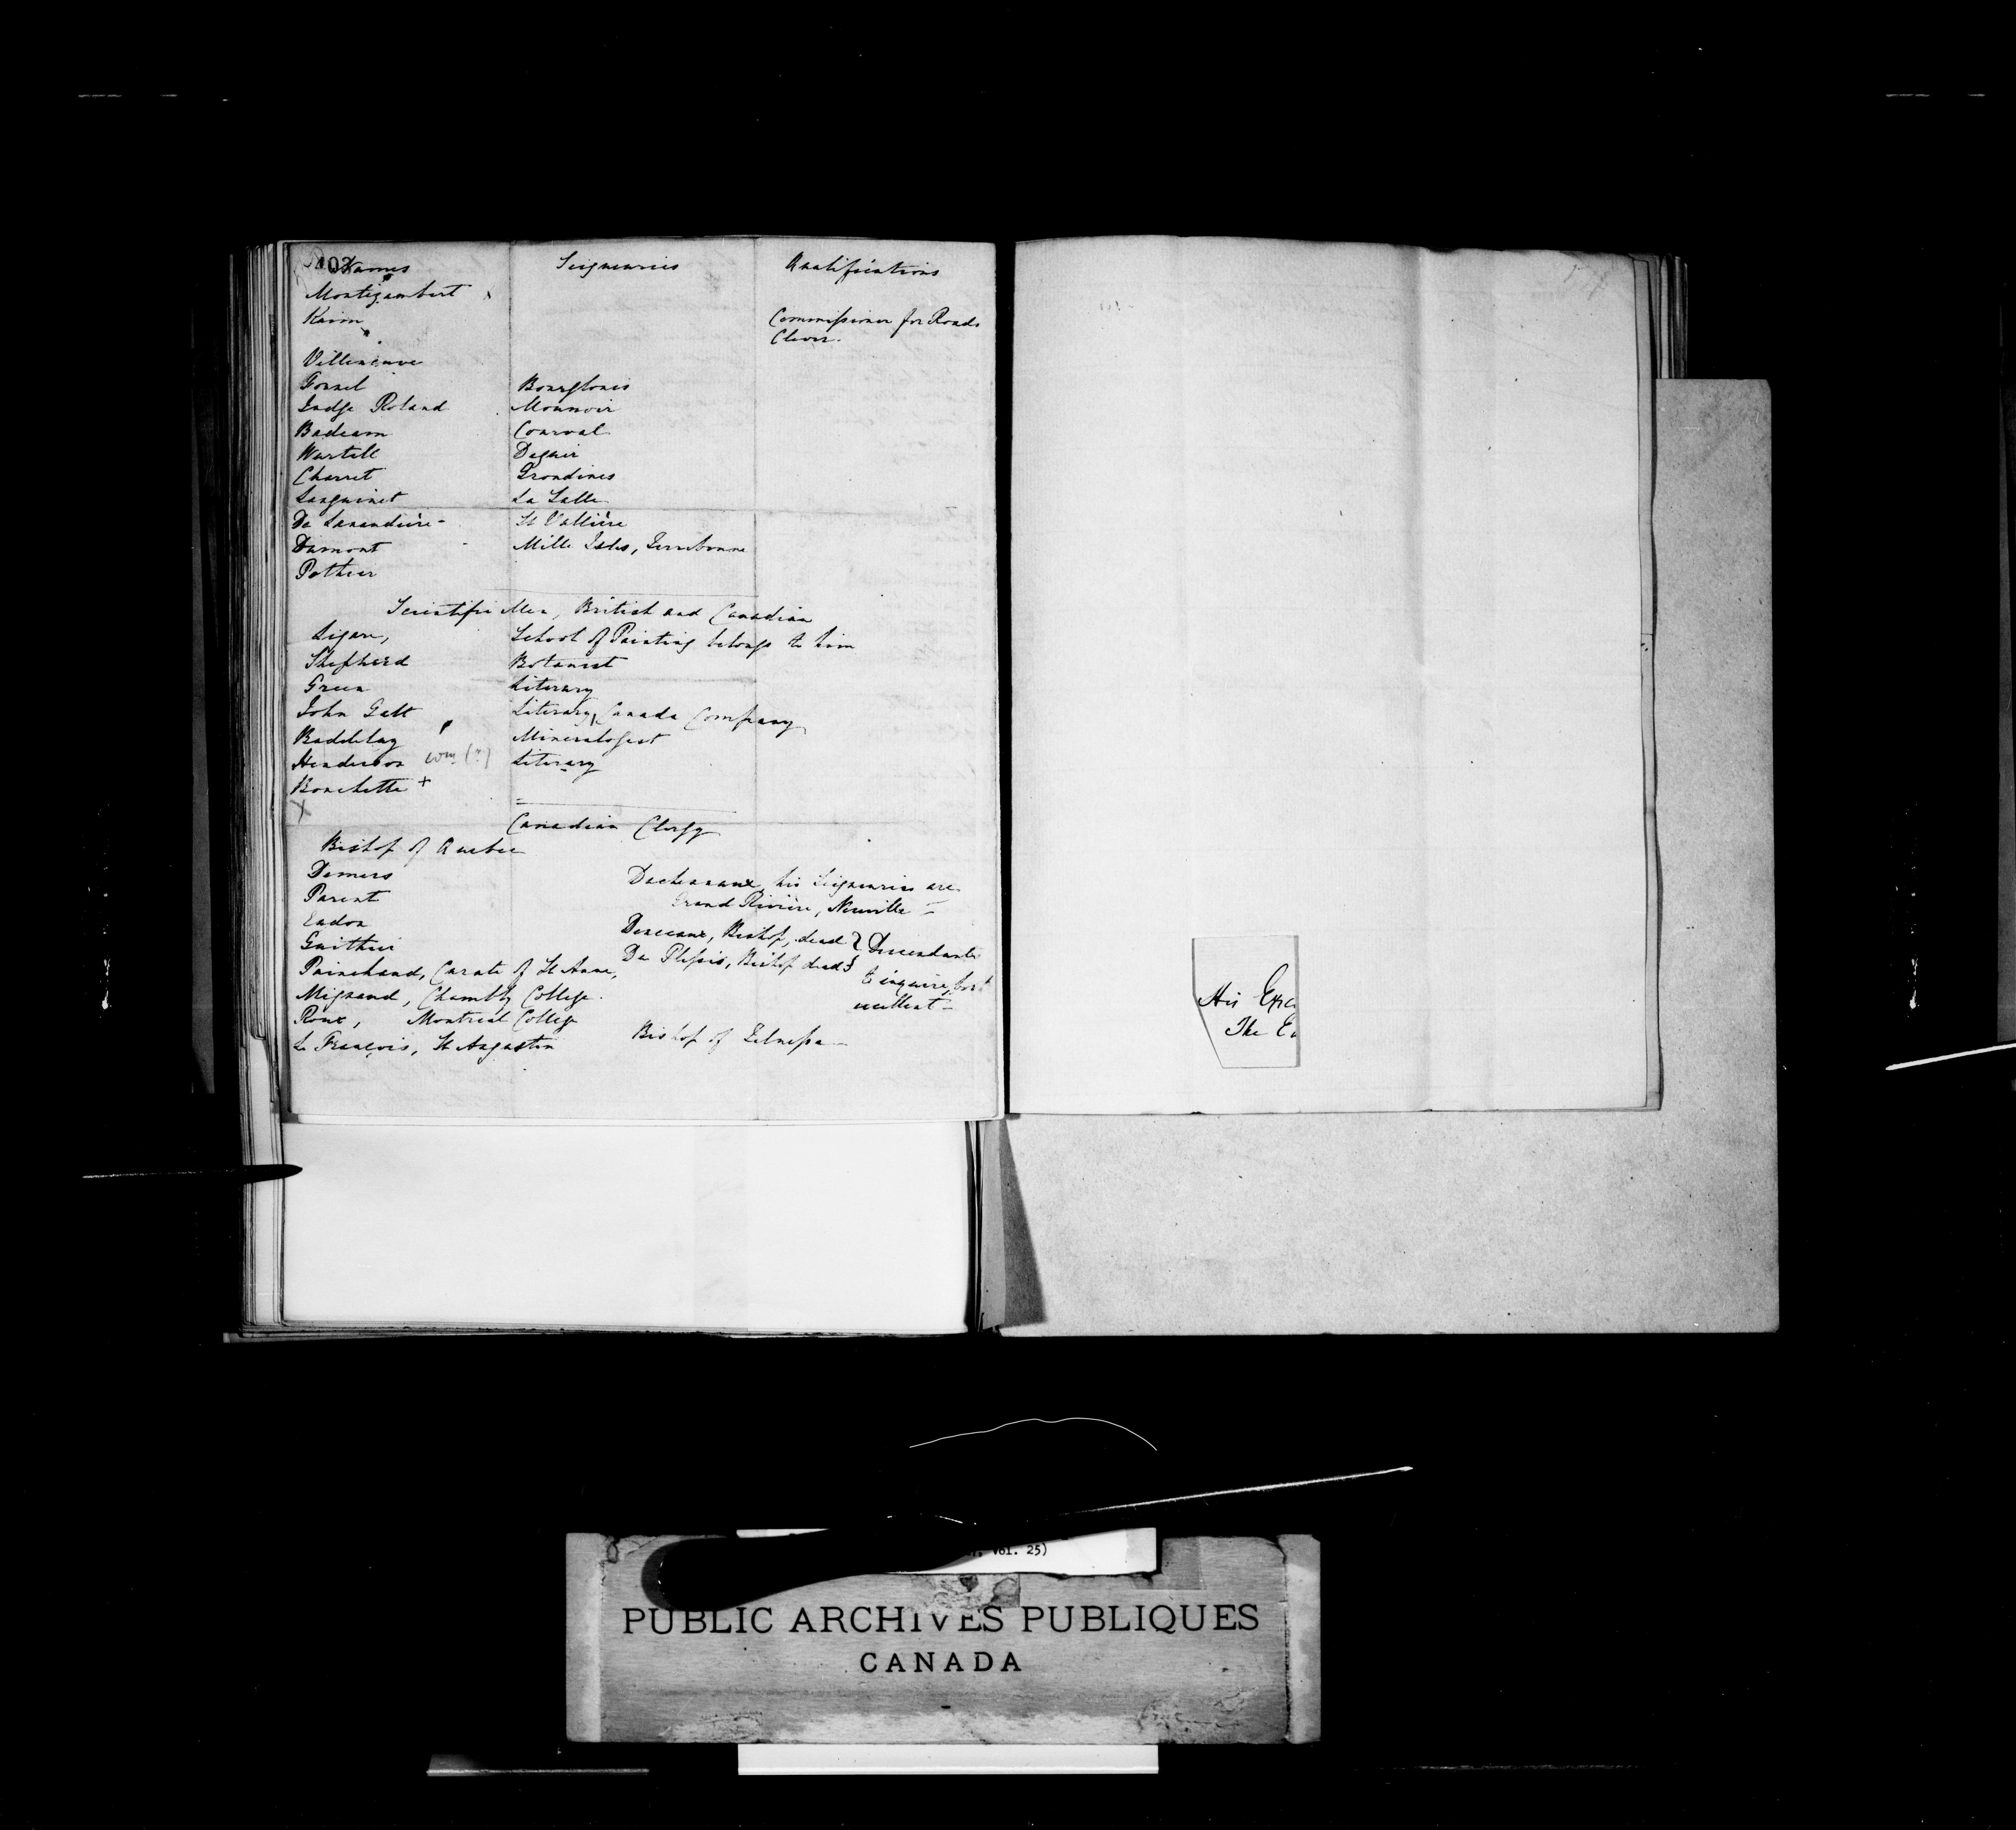 402
Names Seigneuries Qualifications
Montizambert x
Kaim Commissioner for Roads
Clever.
Villeneuve
Gonnel Bourglouis
Judge Roland Monnoir
Badeaux Courval
Wurtell Deguir
Charret Grondines
Sanguinet La Salle
De Lanaudière - St Vallière
Dumont - Mille Isles, Terrebonne
Pothier
Scientific Men, British and Canadian
Ligare, School of Painting belongs to him
Shepherd Botanist
Green Literary
John Galt Literary, Canada Company
Baddelay Mineralogist
Henderson Wm (?) Literary
Bouchette +
x
Canadian Clergy
Bishop of Quebec
Demers
Dechenaux, his Seigneuries are
Parent
Grand Rivière, Neuville -
Eadon
Deseceaux, Bishop, dead } Descendants
Gaithier
De Plessis, Bishop dead } to inquire for
Painchaud, Curate of St Anne,
excellent -
Mignaud, Chambly College.
Roux, Montreal College
Bishop of Telmessa -
Le François, St Augustin
His Exce
The Ea
Vol. 25)
PUBLIC ARCHIVES PUBLIQUES
CANADA